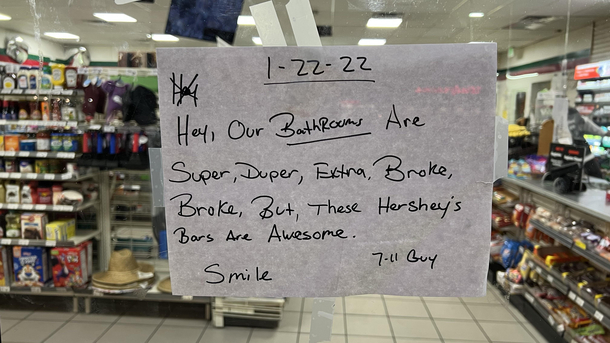 1-22-22
Hey, Our BathRooms Are
Super, Duper, Extra, Broke,
Broke, But, These Hershey's
Bars Are Awesome.
7-11 Guy
Smile